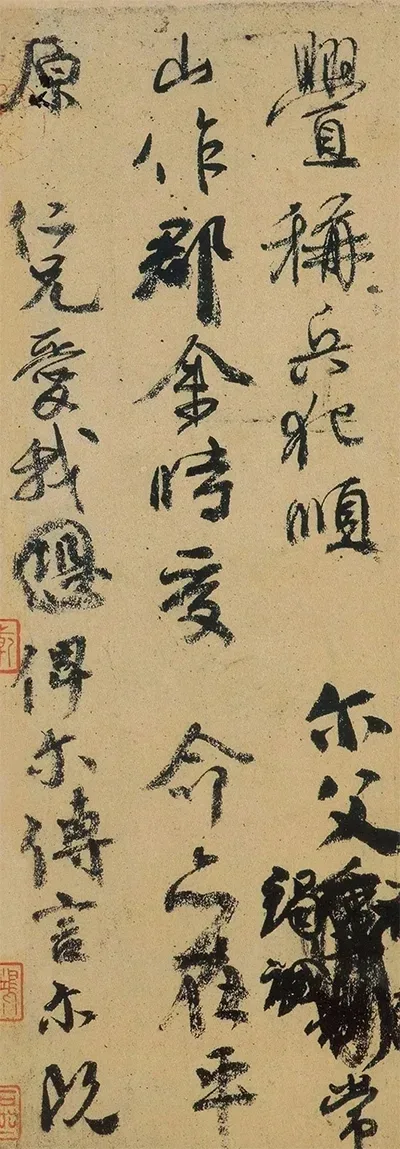 舋稱兵犯順 尔父竭誠常
山作郡余時受 命亦在平
原 仁兄愛我恐俾尔傳言尔既